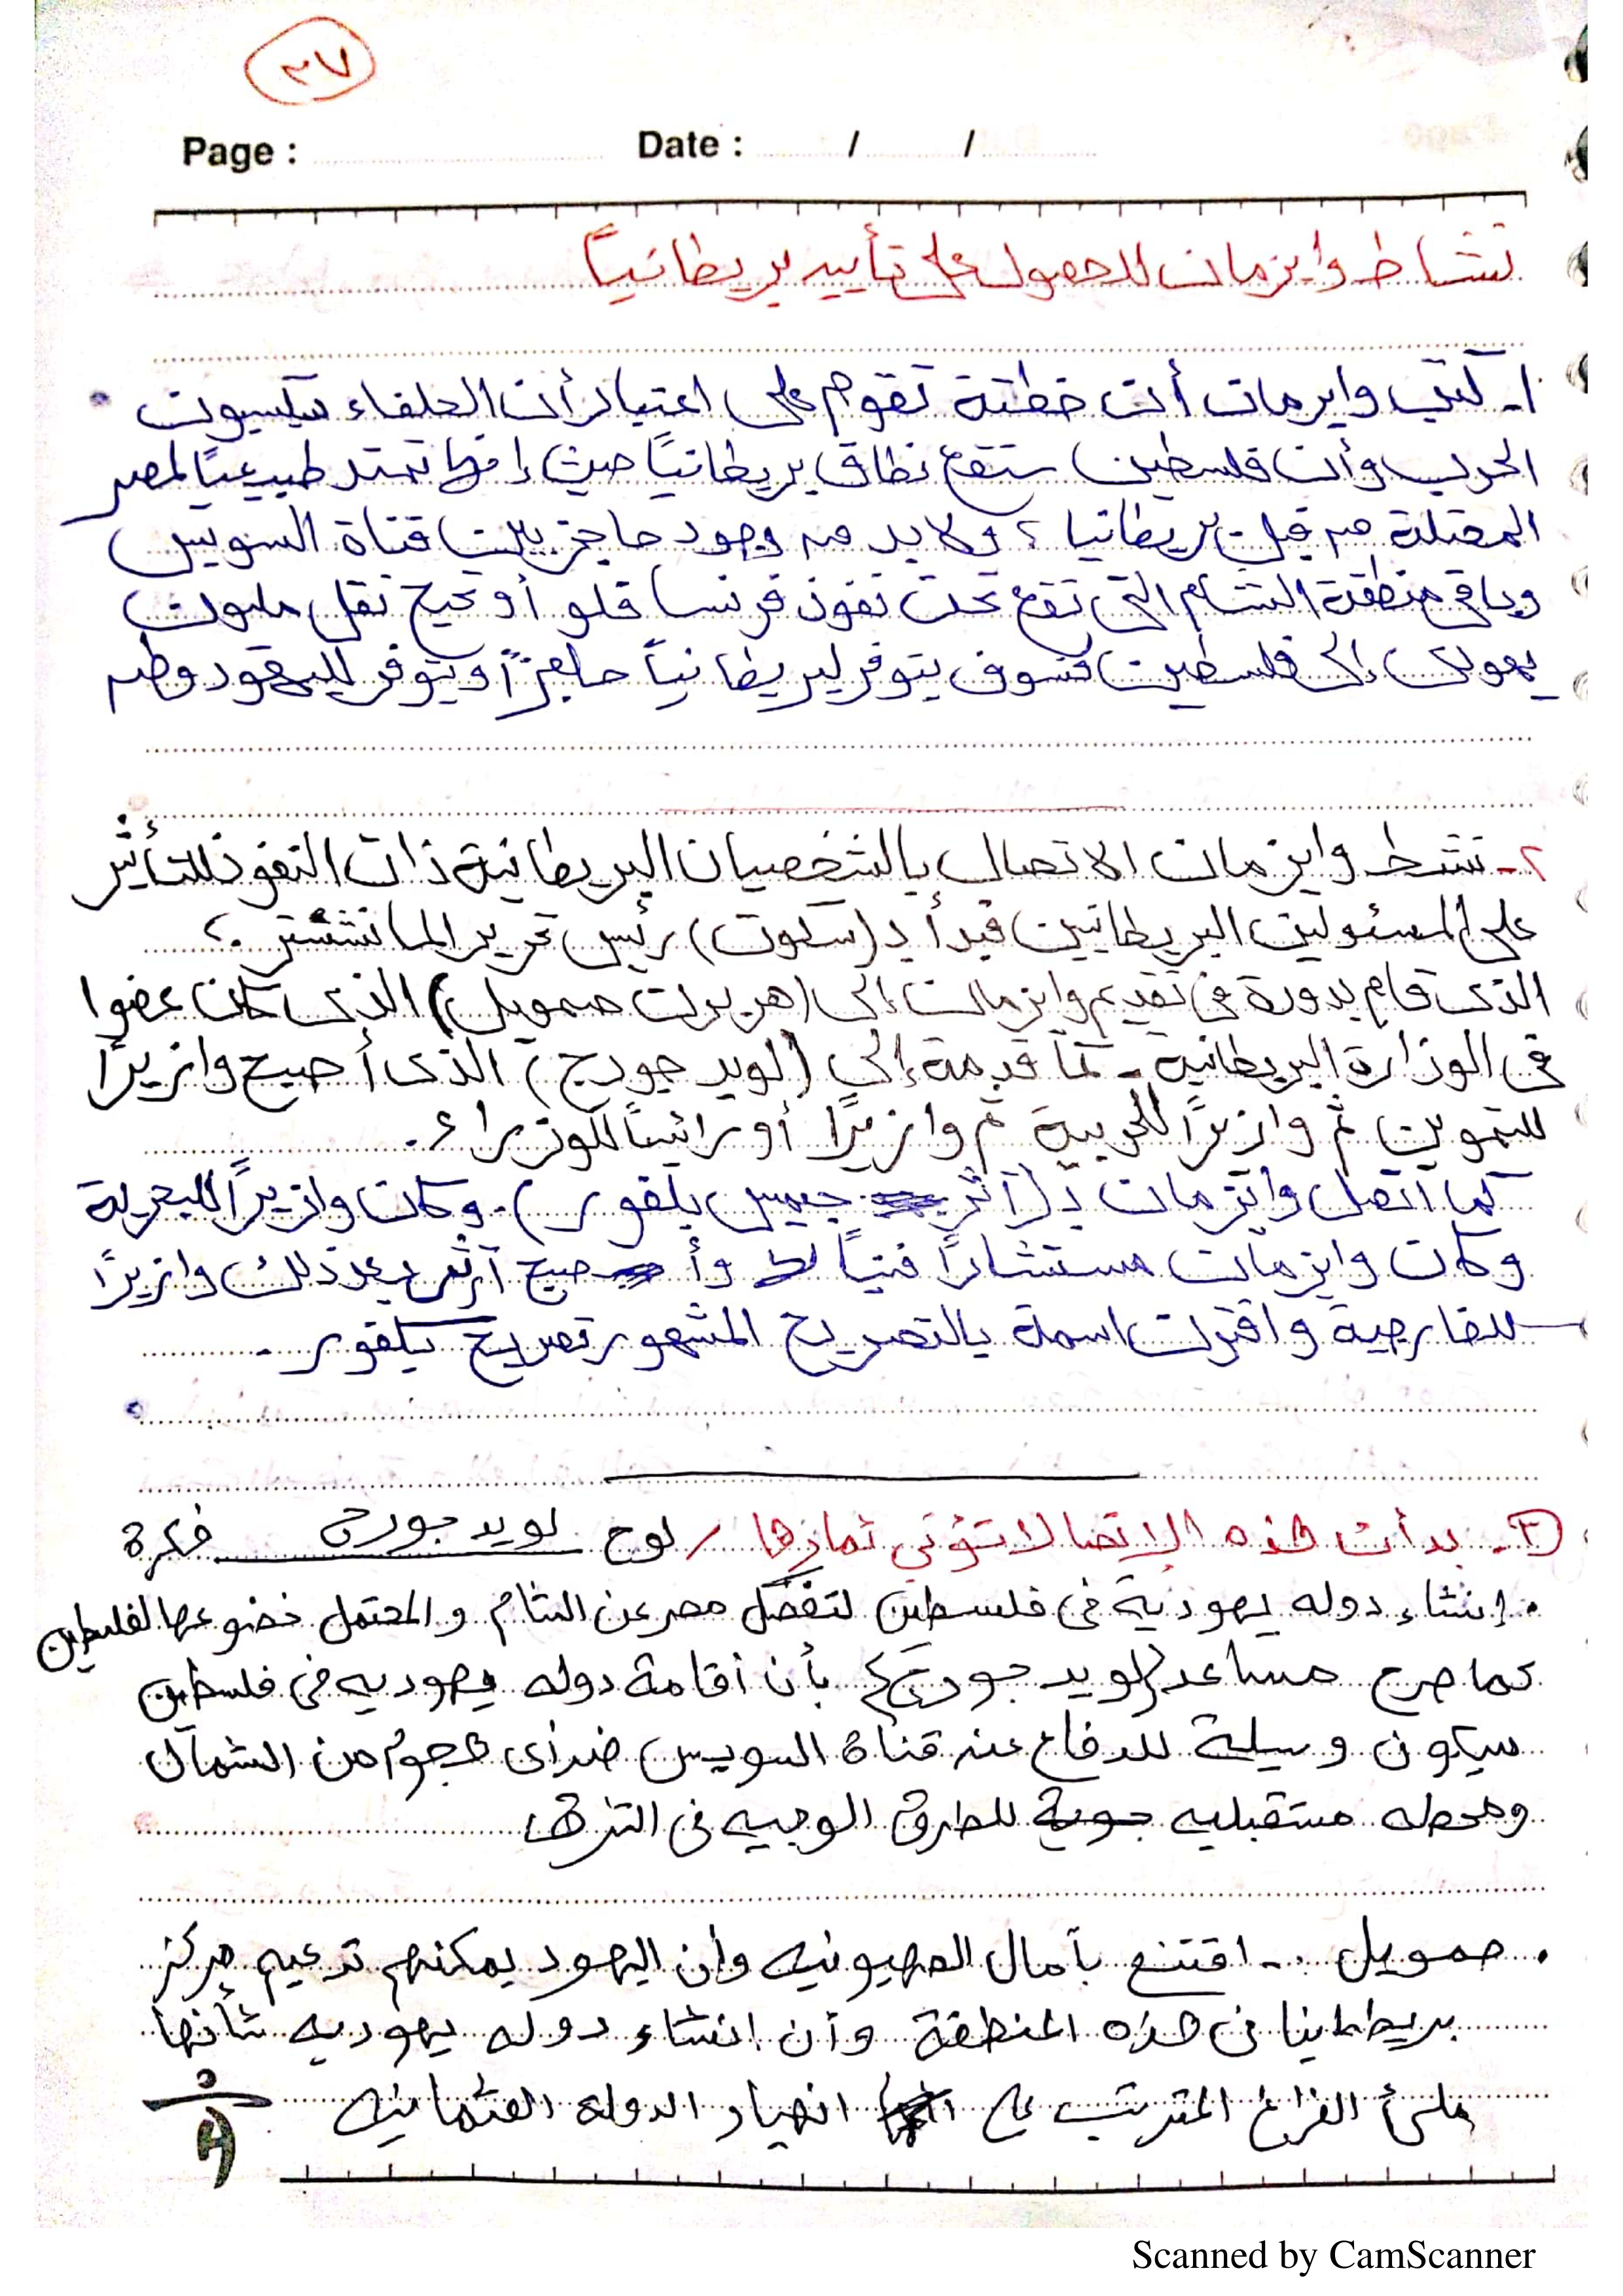 ٣٧
Page : Date : / /
نشاط وايزمان للحصول على تأييد بريطانياً
١- كتب وايزمان أن خطتة تقوم على اعتبار أن الحلفاء سيكسبون
الحرب وأن فلسطين ستقع نطاق بريطانياً حيث إنها تمتد طبيعياً لمصر
المحتلة من قبل بريطانيا ، ولا بد من وجود حاجز بين قناة السويس
وباقى منطقة الشام التى تقع تحت نفوذ فرنسا فلو أوتحيح نقل مليون
يهودى إلى فلسطين فسوف يتوفر لبريطانياً حاجزاً ويتوفر لليهود وطن
٢- نشط وايزمان الاتصال بالشخصيان البريطانية ذات النفوذ للتأثير
على المسئولين البريطانين فبدأ بـ (سكوت) رئيس تحرير المانشستر ،
الذى قام بدورة فى تقديم وايزمان إلى (هربرت صمويل) الذى كان عضوا
فى الوزارة البريطانية - كما قدمة إلى (لويد جورج) الذى أصبح وازيراً
للتموين ثم وازيراً للحربية ثم وازيراً أو رائيساً للوزراء .
كما اتصل وايزمان بـ (آثر جيمس بلفور) . وكان وازيراً للبحرية
وكان وايزمان مستشاراً فنياً له وأصبح آرثر بعد ذلك وازيراً
للخارجية واقترن اسمة بالتصريح المشهور تصريح بلفور .
٣- بدأت هذه الاتصالا تؤتى ثمارها / لوح لويد جورج فكرة
. إنشاء دوله يهودية فى فلسطين لتفصل مصر عن الشام والمحتمل خضوعها لفلسطين
كما صرح مساعد (لويد جورج) بأن أقامة دوله يهوديه فى فلسطين
سيكون وسيلة للدفاع عنه قناة السويس ضد أى هجوم من الشمال
ومحطه مستقبليه جوية للطرق الوجيه فى الشرق
. صمويل .- اقتنع بآمال الصهيونيه وأن اليهود يمكنهم تدعيم مركز
بريطانيا فى هذه المنطقة وأن انشاء دوله يهوديه شأنها
ملئ الفراغ المترتب على انهيار الدوله العثمانيه
Scanned by CamScanner